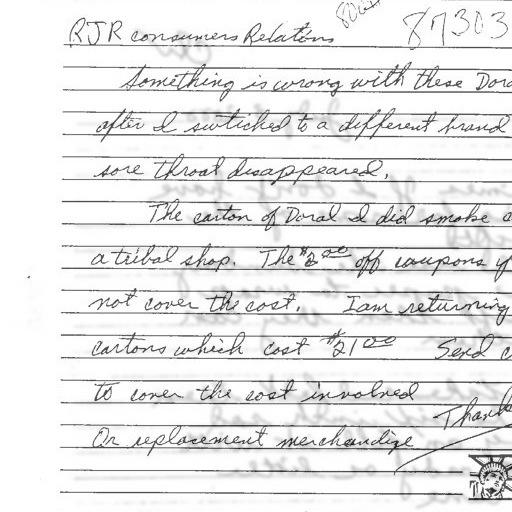 RJR consumers Relations 87303
Something is wrong with these Dora
after I swtiched to a different brand
sore throat disappeared.
The carton of Doral I did smoke
a tribal shop. The $2.00 off coupons y
not cover the cost. I am returning
cartons which cost $21.00 Send c
to cover the cost involved
Thank
Or replacement merchandize